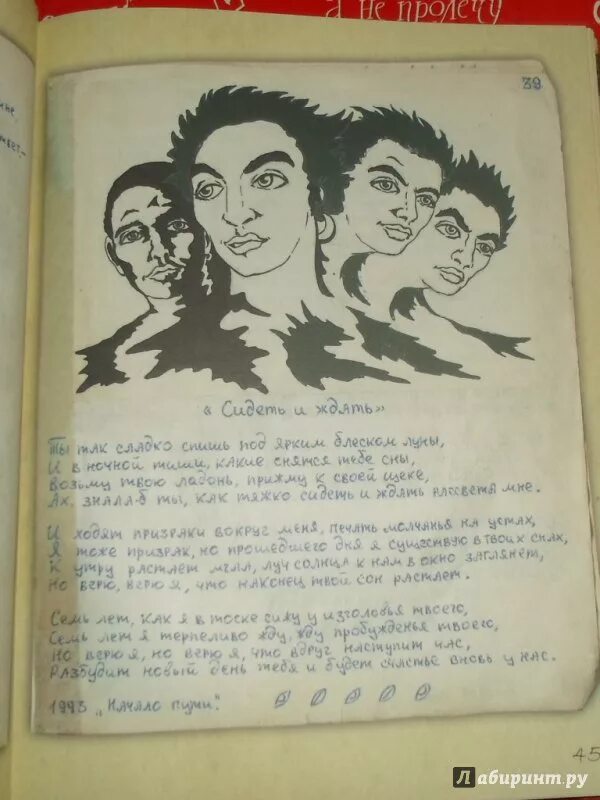 а не пролечу
39
« Сидеть и ждать»
Ты так сладко спишь под ярким блеском луны,
И в ночной тиши, какие снятся тебе сны,
Возьму твою ладонь, прижму к своей щеке,
Ах, знала-б ты, как тяжко сидеть и ждать рассвета мне.
И ходят призраки вокруг меня, печать молчанья на устах,
Я тоже призрак, но прошедшего дня я существую в твоих снах,
К утру растает мгла, луч солнца к нам в окно заглянет,
Но верю, верю я, что наконец твой сон растает.
Семь лет, как я в тоске сижу у изголовья твоего,
Семь лет я терпеливо жду, жду пробужденья твоего,
Но верю я, но верю я, что вдруг наступит час,
Разбудит новый день тебя и будет счастье вновь у нас.
1993 „Начало пути".
45
Лабиринт.ру